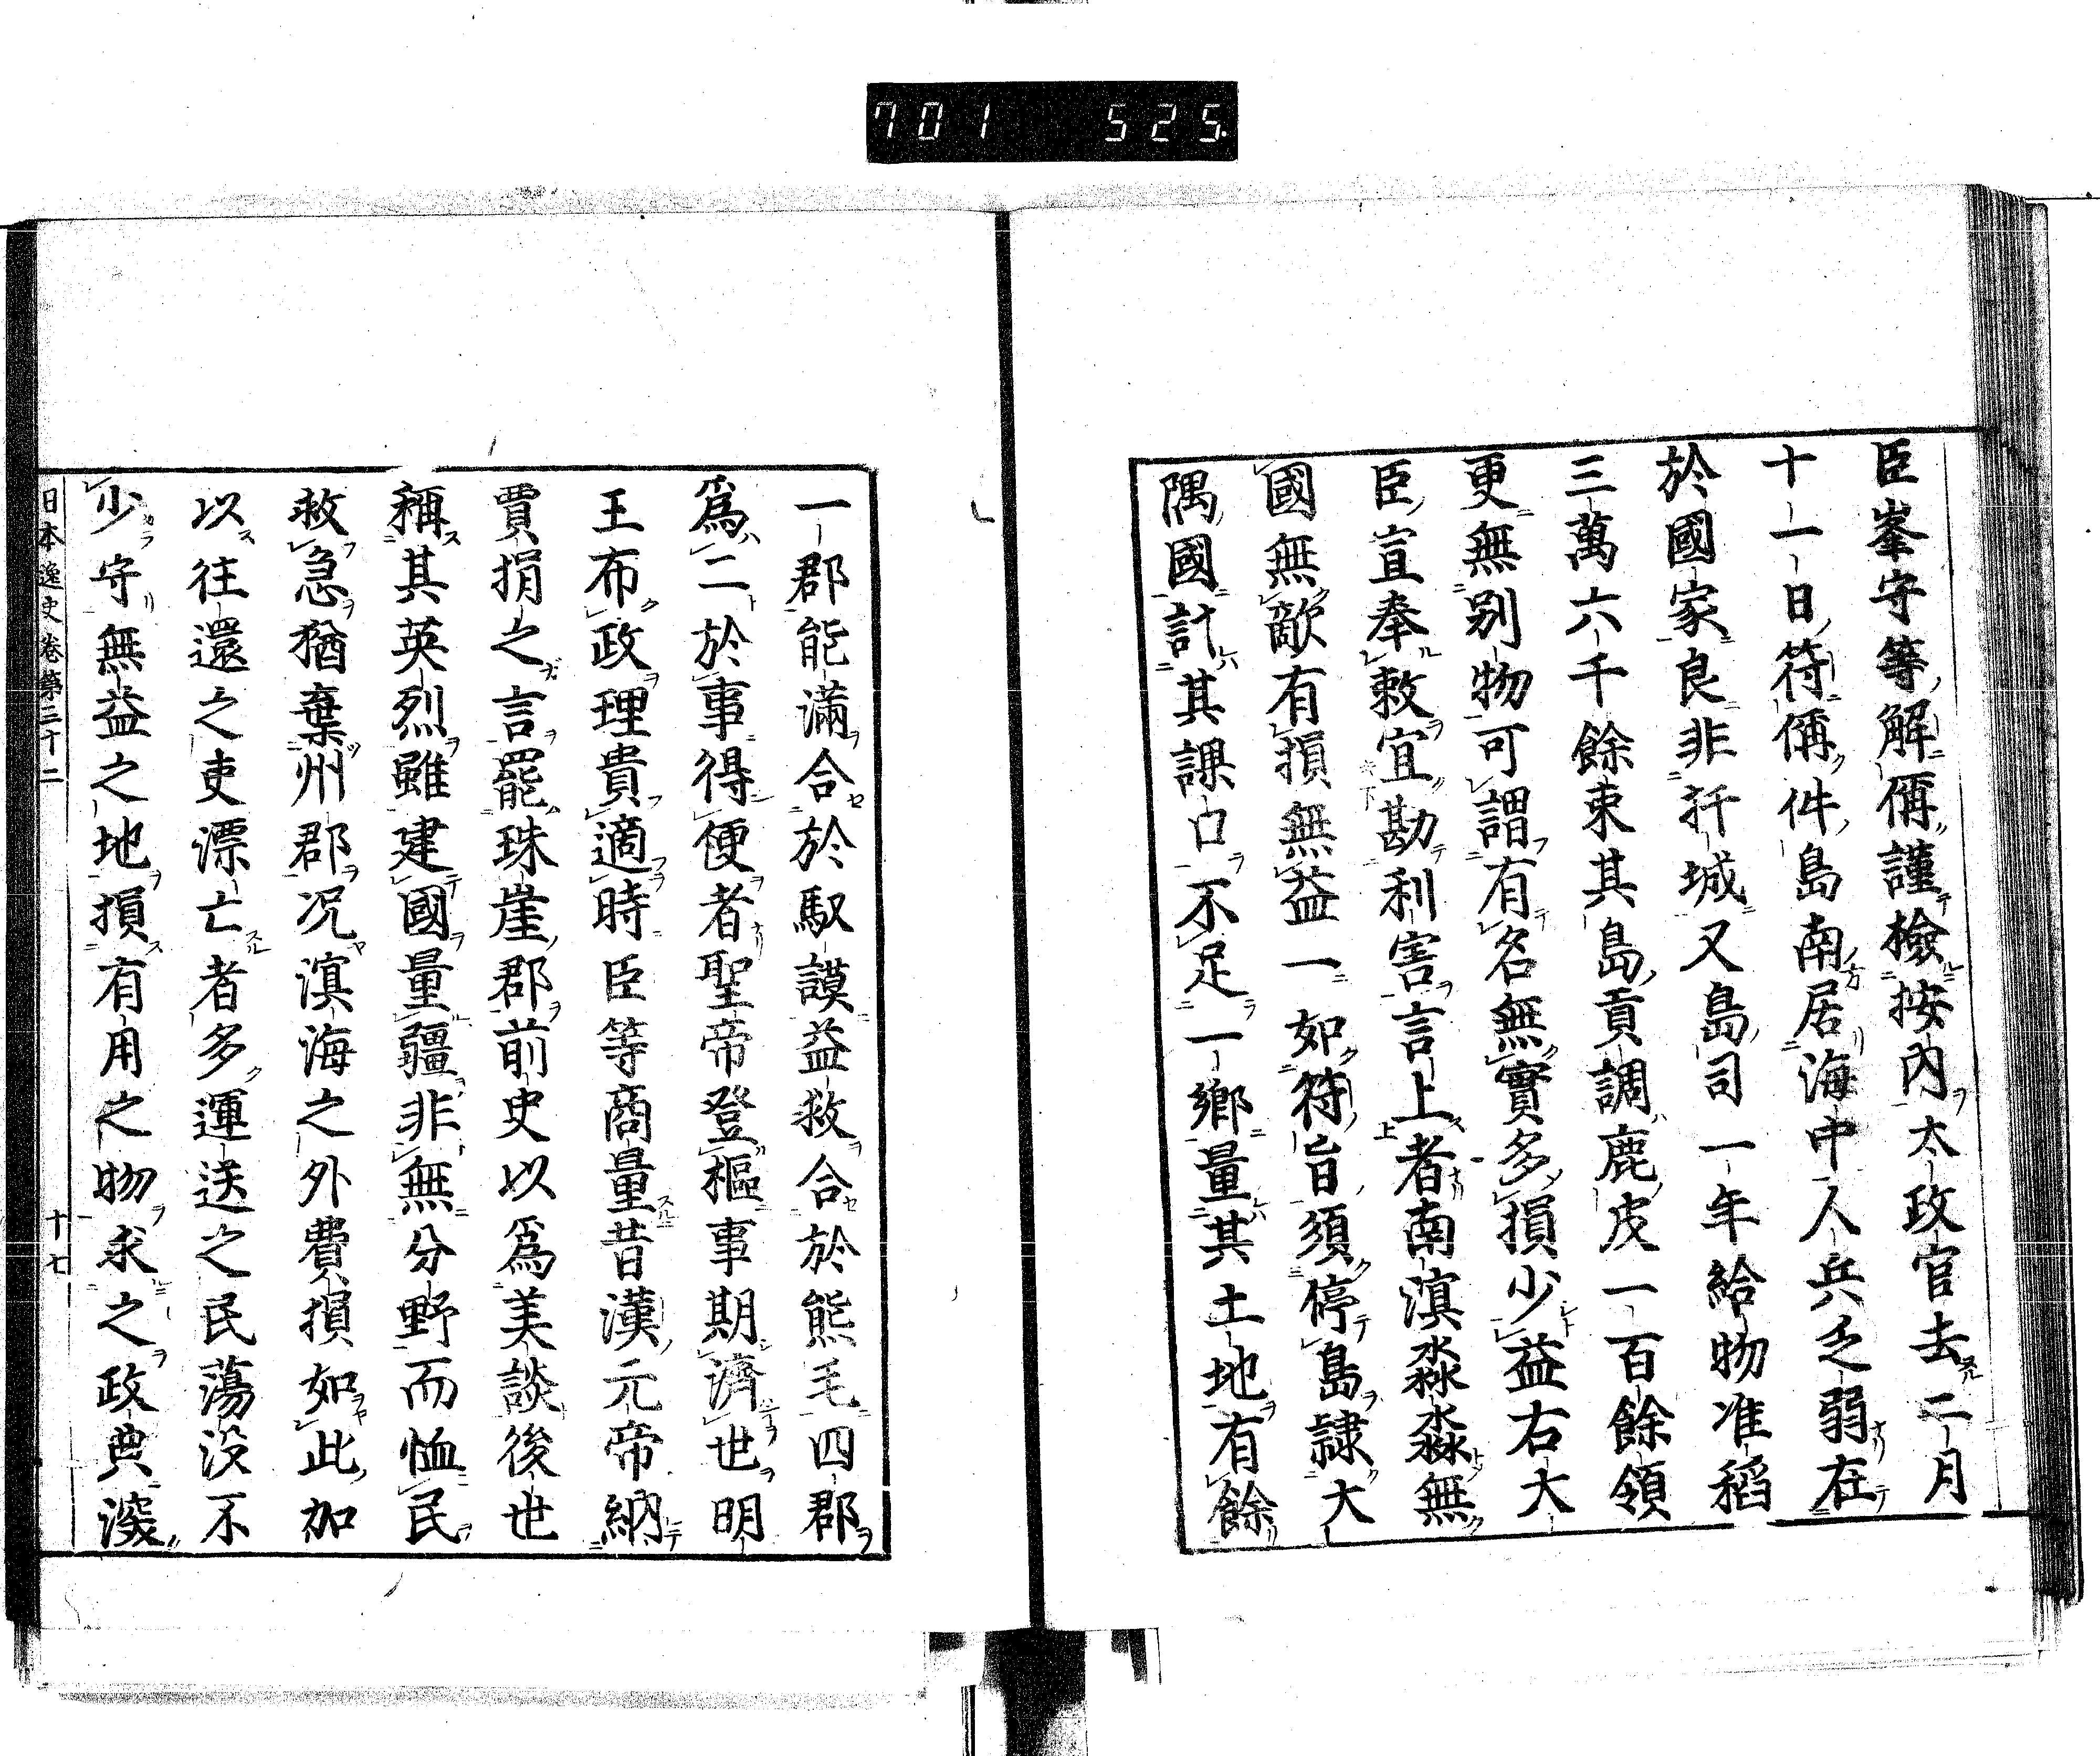 701 525
臣峯守等解偁謹檢按內太政官去二月
十一日符偁件島南居海中人兵乏弱在
於國家良非扞城又島司一年給物准稻
三萬六千餘束其島貢調鹿皮一百餘領
更無別物可謂有名無實多損少益右大
臣宣奉敕宜勘利害言上者南溟淼淼無
國無敵有損無益一如符旨須停島隷大
隅國計其課口不足一鄉量其土地有餘
一郡能滿合於馭謨益救合於熊毛四郡
爲二於事得便者聖帝登樞事期濟世明
王布政理貴適時臣等商量昔漢元帝納
賈捐之言罷珠崖郡前史以爲美談後世
稱其英烈雖建國量疆非無分野而恤民
救急猶棄州郡况溟海之外費損如此加
以往還之吏漂亡者多運送之民蕩沒不
少守無益之地損有用之物求之政典深
日本逸史卷第三十二 十七